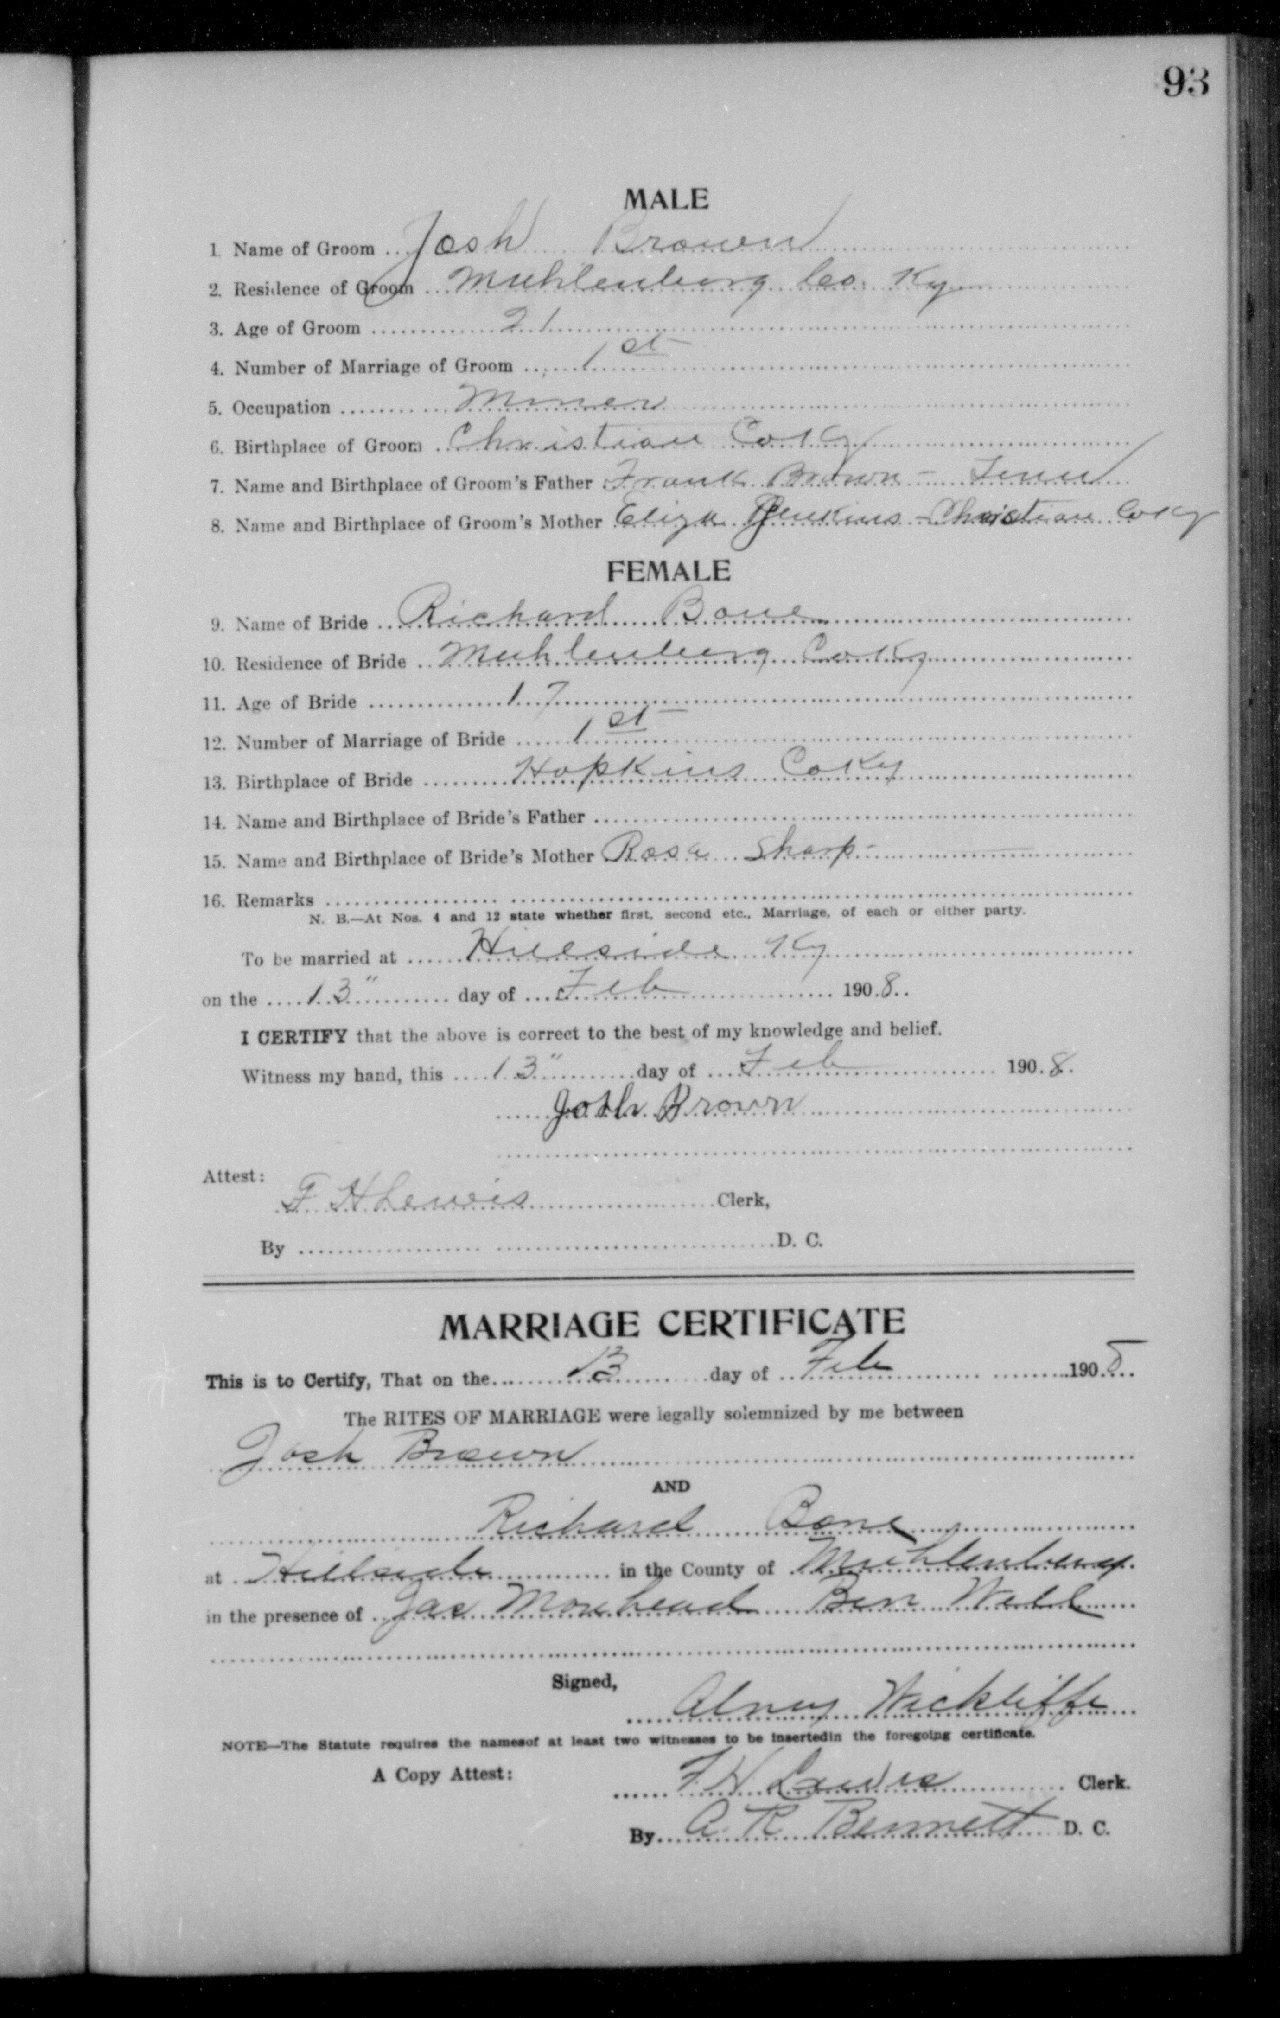 93
MALE
1. Name of Groom Josh Brown
2. Residence of Groom Muhlenberg Co. Ky
3. Age of Groom 21
4. Number of Marriage of Groom 1st
5. Occupation Miner
6. Birthplace of Groom Christian Co Ky
7. Name and Birthplace of Groom's Father Frank Brown - Tenn
8. Name and Birthplace of Groom's Mother Eliza Jenkins - Christian Co Ky
FEMALE
9. Name of Bride Richard Bone
10. Residence of Bride Muhlenberg Co Ky
11. Age of Bride 17
12. Number of Marriage of Bride 1st
13. Birthplace of Bride Hopkins Co Ky
14. Name and Birthplace of Bride's Father
15. Name and Birthplace of Bride's Mother Rosa Sharp -
16. Remarks
N. B.—At Nos. 4 and 12 state whether first, second etc., Marriage, of each or either party.
To be married at Hillside Ky
on the 13" day of Feb 1908.
I CERTIFY that the above is correct to the best of my knowledge and belief.
Witness my hand, this 13" day of Feb 1908.
Josh Brown
Attest:
F H Lewis Clerk,
By D. C.
MARRIAGE CERTIFICATE
This is to Certify, That on the 13 day of Feb 1908
The RITES OF MARRIAGE were legally solemnized by me between
Josh Brown
AND
Richard Bone
at Hillside in the County of Muhlenberg
in the presence of Jas Morehead Ben Well
Signed,
Alney Wickliffe
NOTE—The Statute requires the namesof at least two witnesses to be insertedin the foregoing certificate.
A Copy Attest:
F H Lewis Clerk.
By A. R Bennett D. C.